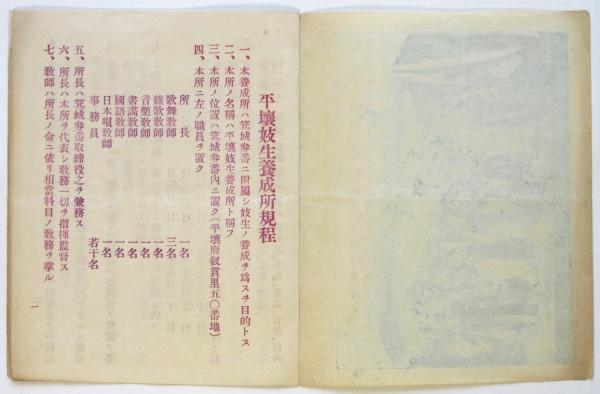 平壤妓生養成所規程
一、本養成所ハ箕城券番ニ附屬シ妓生ノ養成ヲ爲スヲ目的トス
二、本所ノ名稱ハ平壤妓生養成所ト稱フ
三、本所ノ位置ハ箕城券番內ニ置ク(平壤府釵貫里五〇番地)
四、本所ニ左ノ職員ヲ置ク
所長 一名
歌舞敎師 三名
雜歌敎師 一名
音樂敎師 一名
書畵敎師 一名
國語敎師 一名
日本唄敎師 一名
事務員 若干名
五、所長ハ箕城券番取締役之ヲ兼務ス
六、所長ハ本所ヲ代表シ敎務一切ヲ指揮監督ス
七、敎師ハ所長ノ命ニ依リ相當科目ノ敎務ヲ掌ル
一